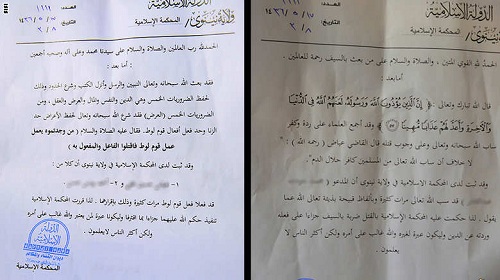 الدولة الإسلامية
ولاية نينوى / المحكمة الإسلامية
العدد:
التاريخ:
الحمد لله القوي المتين ، والصلاة والسلام على من بعث بالسيف رحمة للعالمين .
أما بعد :
قال الله تبارك وتعالى ﴿ إِنَّ الَّذِينَ يُؤْذُونَ اللَّهَ وَرَسُولَهُ لَعَنَهُمُ اللَّهُ فِي الدُّنْيَا
وَالْآخِرَةِ وَأَعَدَّ لَهُمْ عَذَابًا مُّهِينًا ﴾ وقد أجمع العلماء على ردة وكفر
ساب الله سبحانه وتعالى وعلى وجوب قتله قال القاضي عياض ( رحمه الله ) :
" لا خلاف أن ساب الله تعالى من المسلمين كافر حلال الدم".
وقد ثبت لدى المحكمة الإسلامية في ولاية نينوى أن المدعو (
) قد سب الله تعالى مرات كثيرة وبألفاظ قبيحة بذيئة تعالى الله عما
يقول ، لذا حكمت عليه المحكمة الإسلامية بالقتل ضربة بالسيف جزاءا على فعله
وردته عن الدين وليكون عبرة لغيره والله غالب على أمره ولكن أكثر الناس لا
يعلمون .
الدولة الإسلامية
ولاية نينوى / المحكمة الإسلامية
العدد:
التاريخ:
الحمدلله رب العالمين والصلاة والسلام على سيدنا محمد وعلى آله وصحبه أجمعين
أما بعد :
فقد بعث الله سبحانه وتعالى النبيين والرسل وأنزل الكتب وشرع الحدود وذلك
لحفظ الضروريات الخمس وهي الدين والنفس والمال والعرض والعقل ، ومن
الضروريات الخمس (العرض) فقد شرع الله سبحانه وتعالى لحفظ الأعراض حد
الزنا وحد فعل أفعال قوم لوط. فقال عليه الصلاة والسلام ( من وجدتموه يعمل
عمل قوم لوط فاقتلوا الفاعل والمفعول به )
وقد ثبت لدى المحكمة الإسلامية في ولاية نينوى أن كلا من :
١- ٢-
قد فعلا فعل قوم لوط مرات كثيرة وذلك بإقرارهما . لذا قررت المحكمة الإسلامية
تنفيذ حكم الله عليهما جزاءا بما اقترفا وليكونا عبرة لمن يعتبر والله غالب على أمره
ولكن أكثر الناس لايعلمون .
الدولة الإسلامية
ديوان القضاء والمظالم
المحكمة الإسلامية